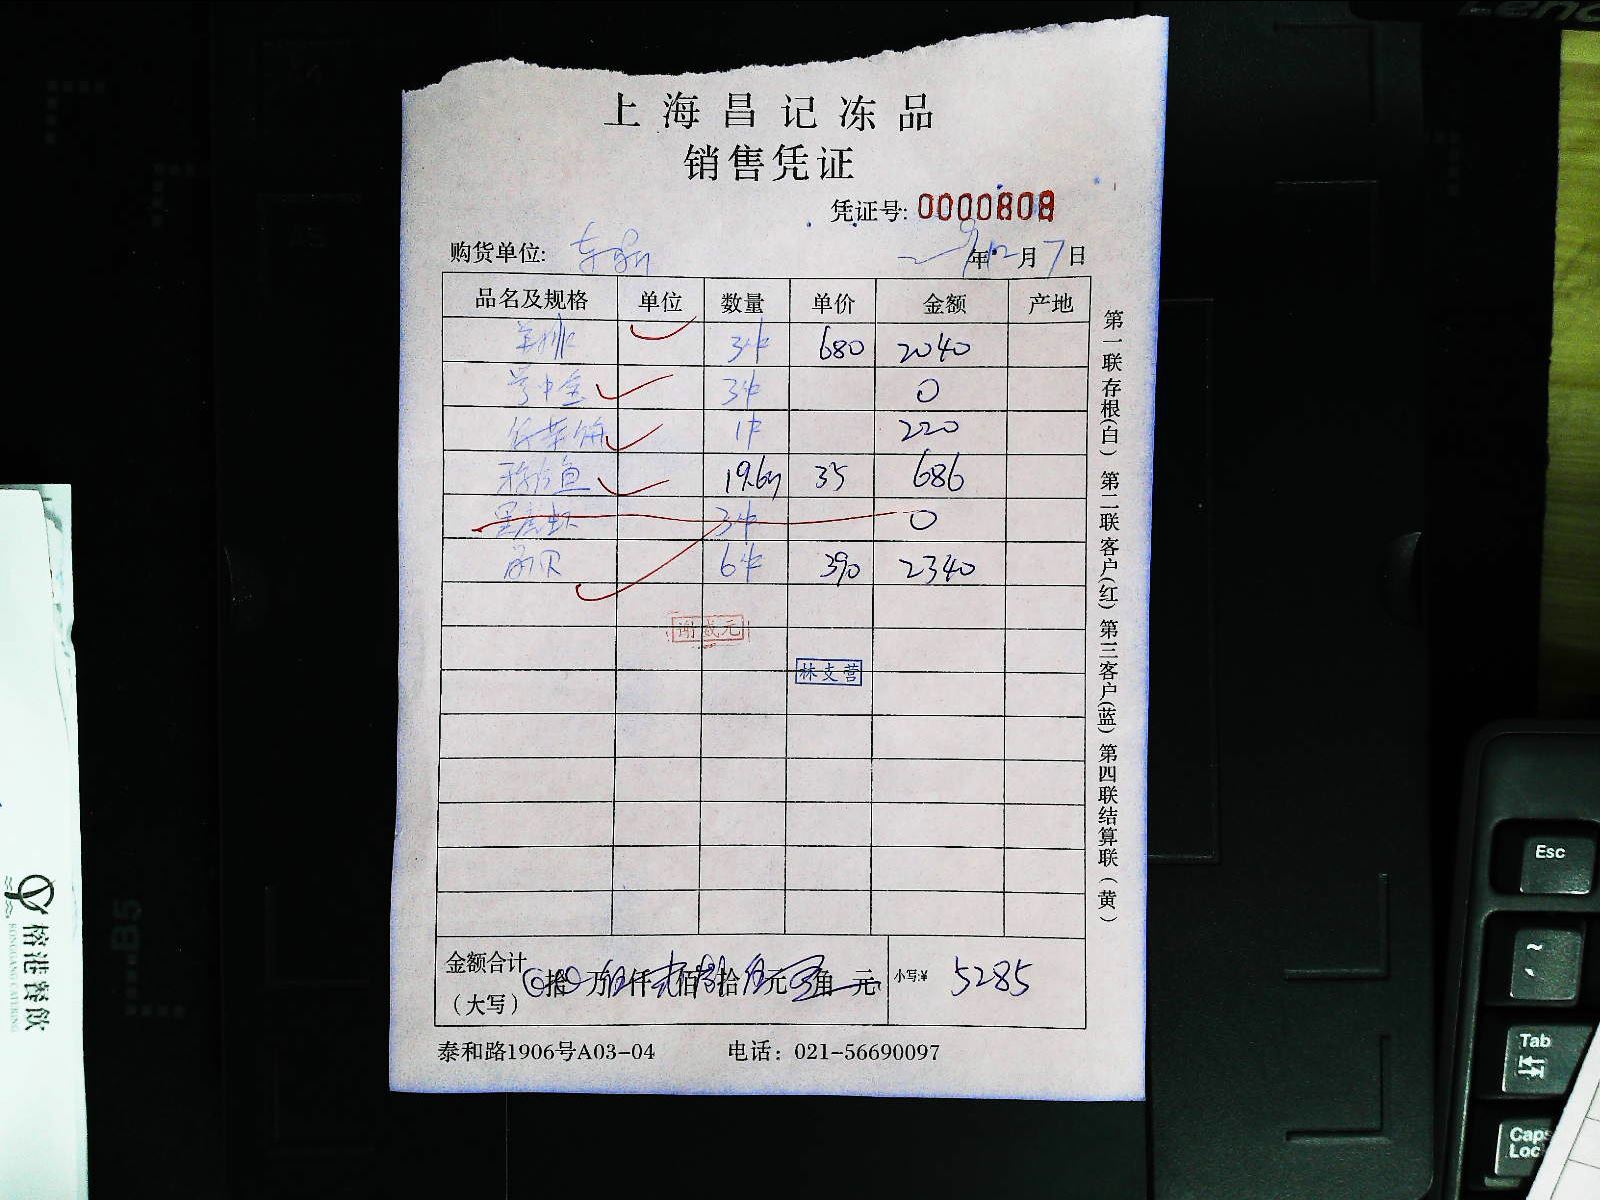 上海昌记冻品
销售凭证
凭证号: 0000808
购货单位: 年12月7日
品名及规格 单位 数量 单价 金额 产地
羊排 3件 680 2040
3件 0
1件 220
鱼 19.6斤 35 686
黑虎虾 3件 0
贝 6件 390 2340
谢成元
林支营
金额合计
（大写） 拾 万 伍仟 贰佰 捌拾 伍元 角 元 小写:¥ 5285
泰和路1906号A03-04 电话：021-56690097
第一联存根(白) 第二联客户(红) 第三客户(蓝) 第四联结算联(黄)
榕港餐飲
RONGGANG CATERING
B5
Lenovo
Esc
~
Tab
Caps
Loc